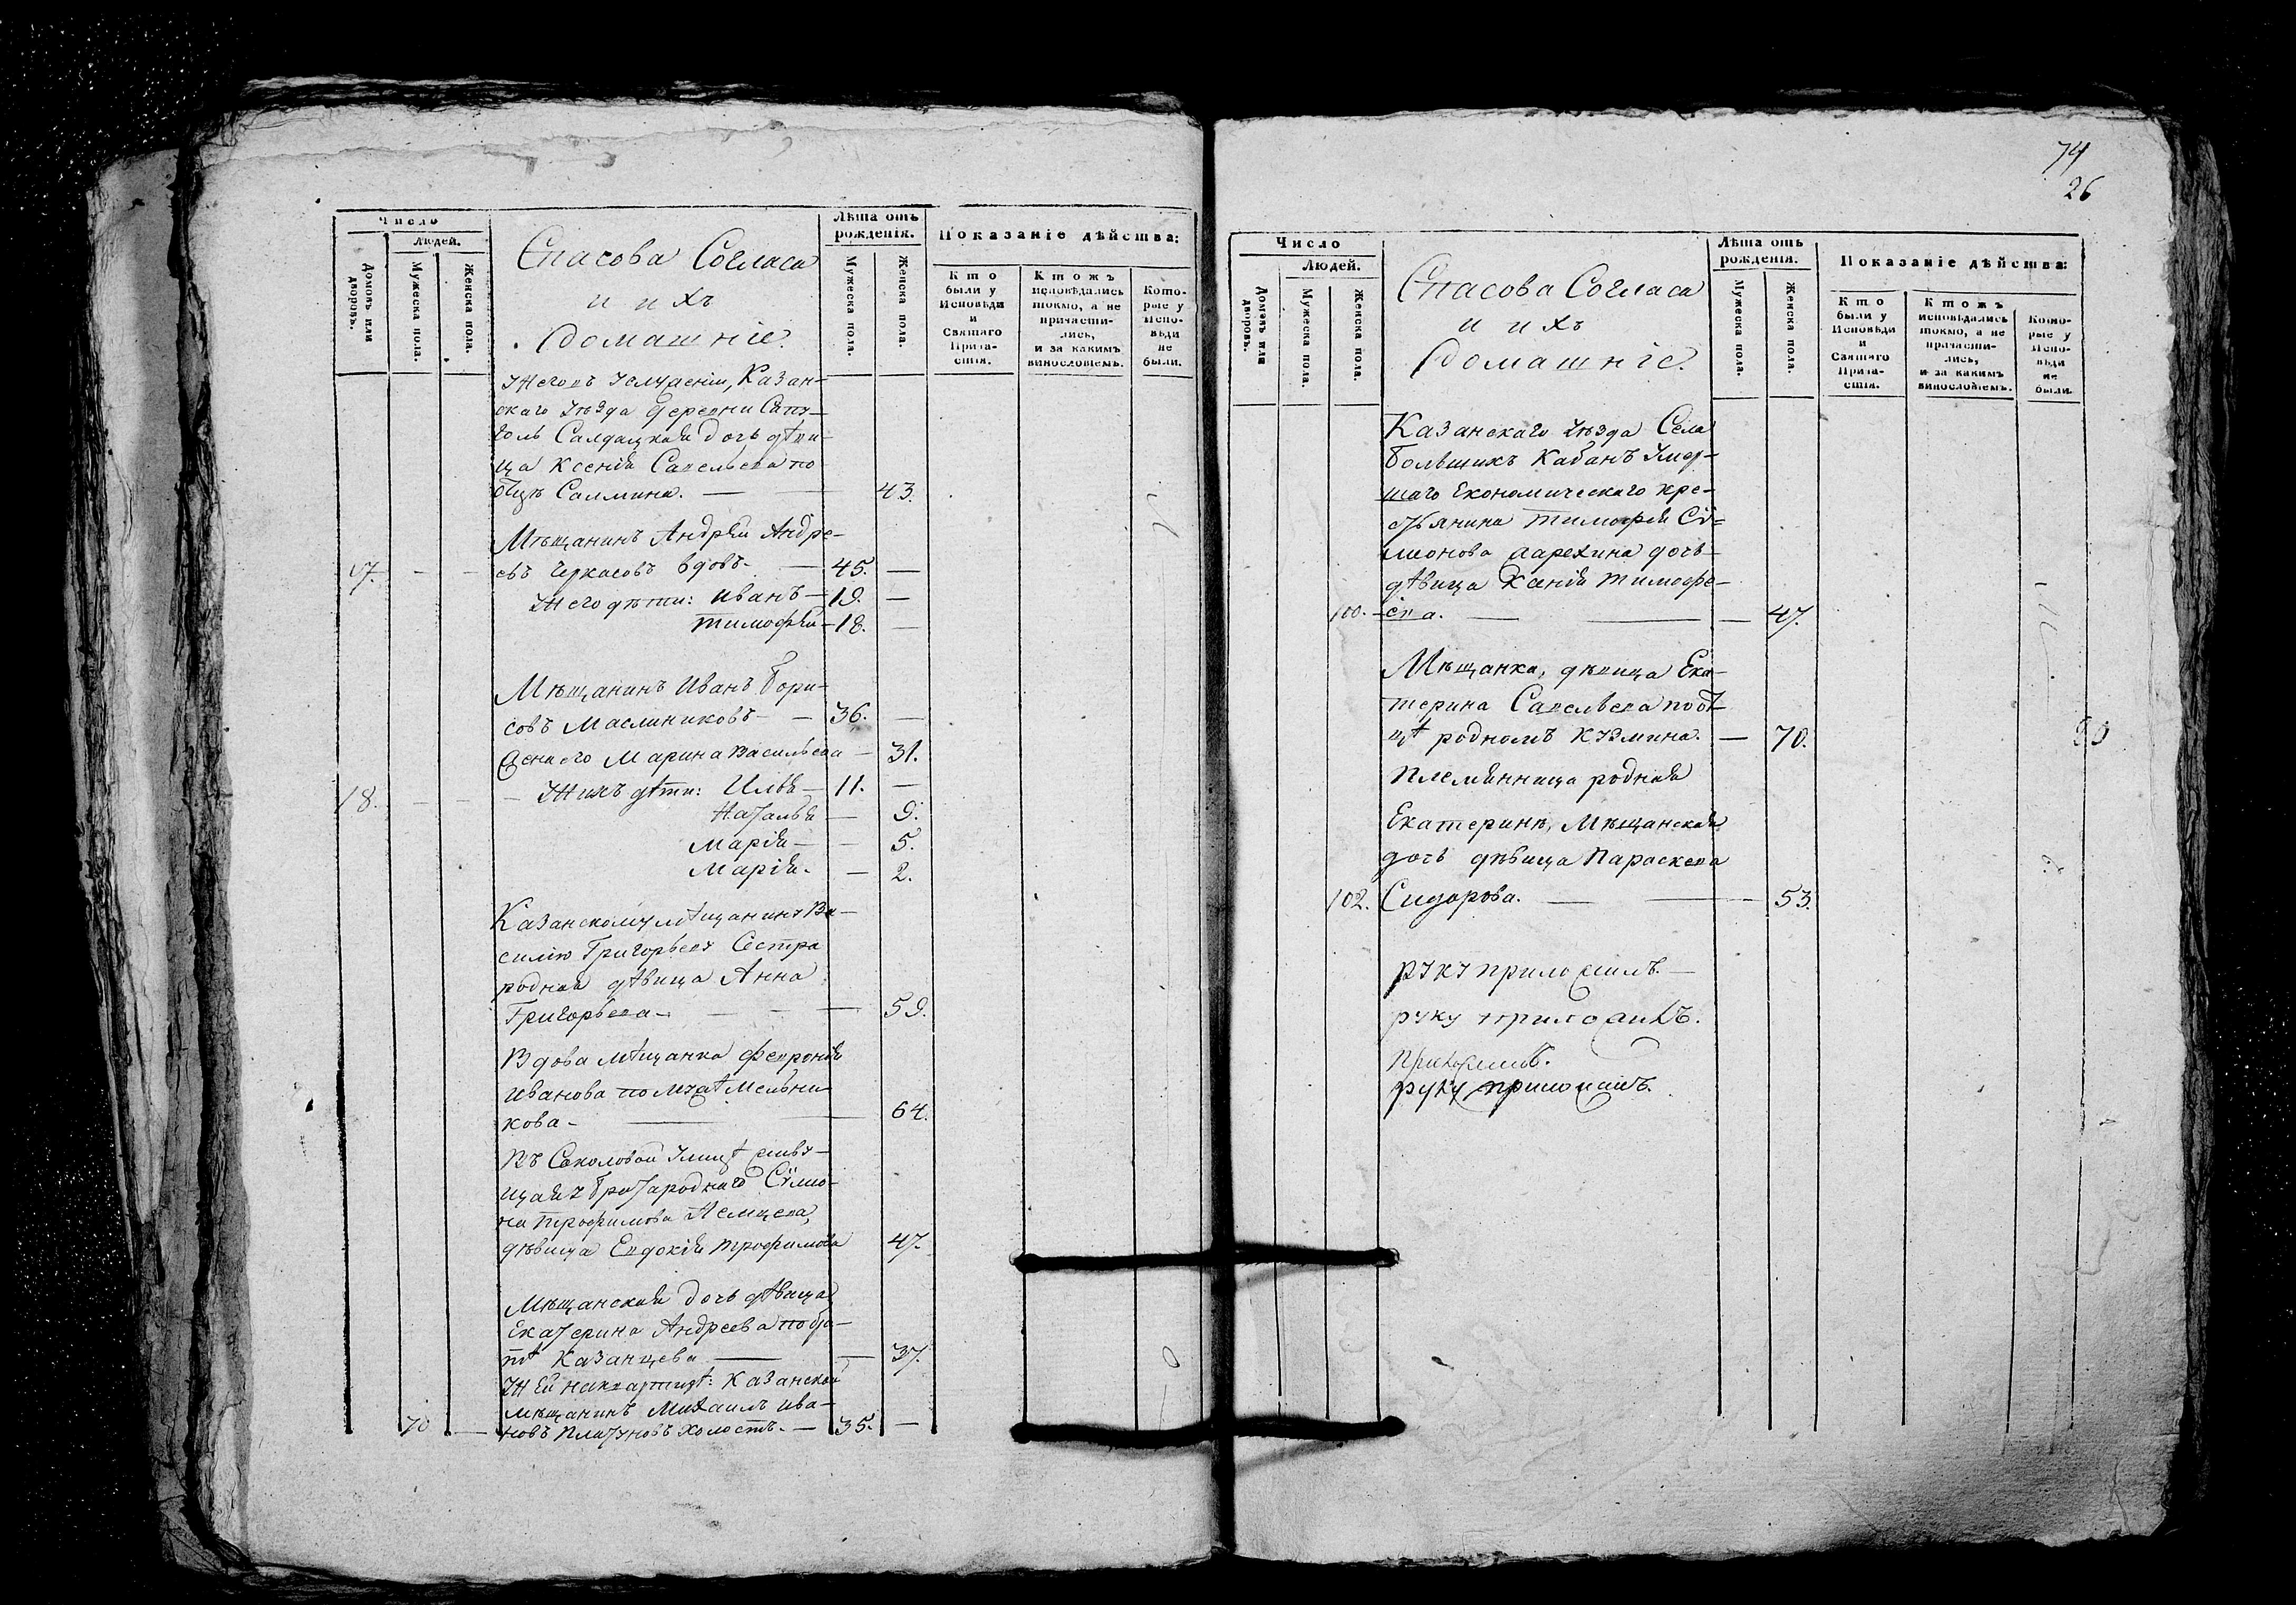 Число
Людей.
Домовъ или дворовъ.
Мужеска пола.
Женска пола.
Спасова Согласа
и ихъ
домашніе.
Лѣта отъ
рожденія.
Мужеска пола.
Женска пола.
Показаніе дѣйства:
Кто
были у
Исповѣди
и
Святаго
Прича-
стія.
Ктожъ
исповѣдались
токмо, а не
причасти-
лись,
и за какимъ
винословіемъ.
Кото-
рые у
Испо-
вѣди
не
были.
Казан-
скаго уѣзда деревни
Салдацкая дочь дѣви-
ца Ксенія Савельева по
43.
Мѣщанинъ Андрей Андре-
17. евъ Черкасовъ вдовъ — 45. —
У него дѣти: Иванъ — 19. —
Тимофей — 18. —
Мѣщанинъ Иванъ Бори-
совъ Маслниковъ — 36. —
Жена его Марина Васильева — 31.
18. У нихъ дѣти: Илья — 11. —
Наталья — 9.
Марія — 5.
Марія — 2.
Казанскому мѣщанину Ва-
силію Григорьеву Сестра
родная дѣвица Анна
Григорьева — 59.
Вдова мѣщанка Февронія
Иванова по мужѣ Мельни-
кова — 64.
Въ Соколовой
на Трофимова
дѣвица Евдокія Трофимова 47.
Мѣщанская дочь дѣвица
Екатерина Андреева по бра-
тѣ Казанцева — 37.
У ней на квартирѣ: Казанской
мѣщанинъ Михаилъ Ива-
70 новъ Платуновъ холостъ. — 35. —
74
26
Число
Людей.
Домовъ или дворовъ.
Мужеска пола.
Женска пола.
Спасова Согласа
и ихъ
домашніе.
Лѣта отъ
рожденія.
Мужеска пола.
Женска пола.
Показаніе дѣйства:
Кто
были у
Исповѣди
и
Святаго
Прича-
стія.
Ктожъ
исповѣдались
токмо, а не
причасти-
лись,
и за какимъ
винословіемъ.
Кото-
рые у
Испо-
вѣди
не
были.
Казанскаго уѣзда Села
Большихъ Кабанъ Умер-
шаго Економическаго кре-
стьянина Тимофея Си-
меонова дочь
дѣвица Ксенія Тимофе-
100. ева. — 47.
Мѣщанка, дѣвица Ека-
терина Савельева по от-
цѣ родномъ Кузмина. — 70.
Племянница родная
Екатеринѣ, Мѣщанская
дочь дѣвица Параскева
102. Сидорова. — 53.
руку приложилъ.
руку приложилъ.
Приложилъ.
руку приложилъ.